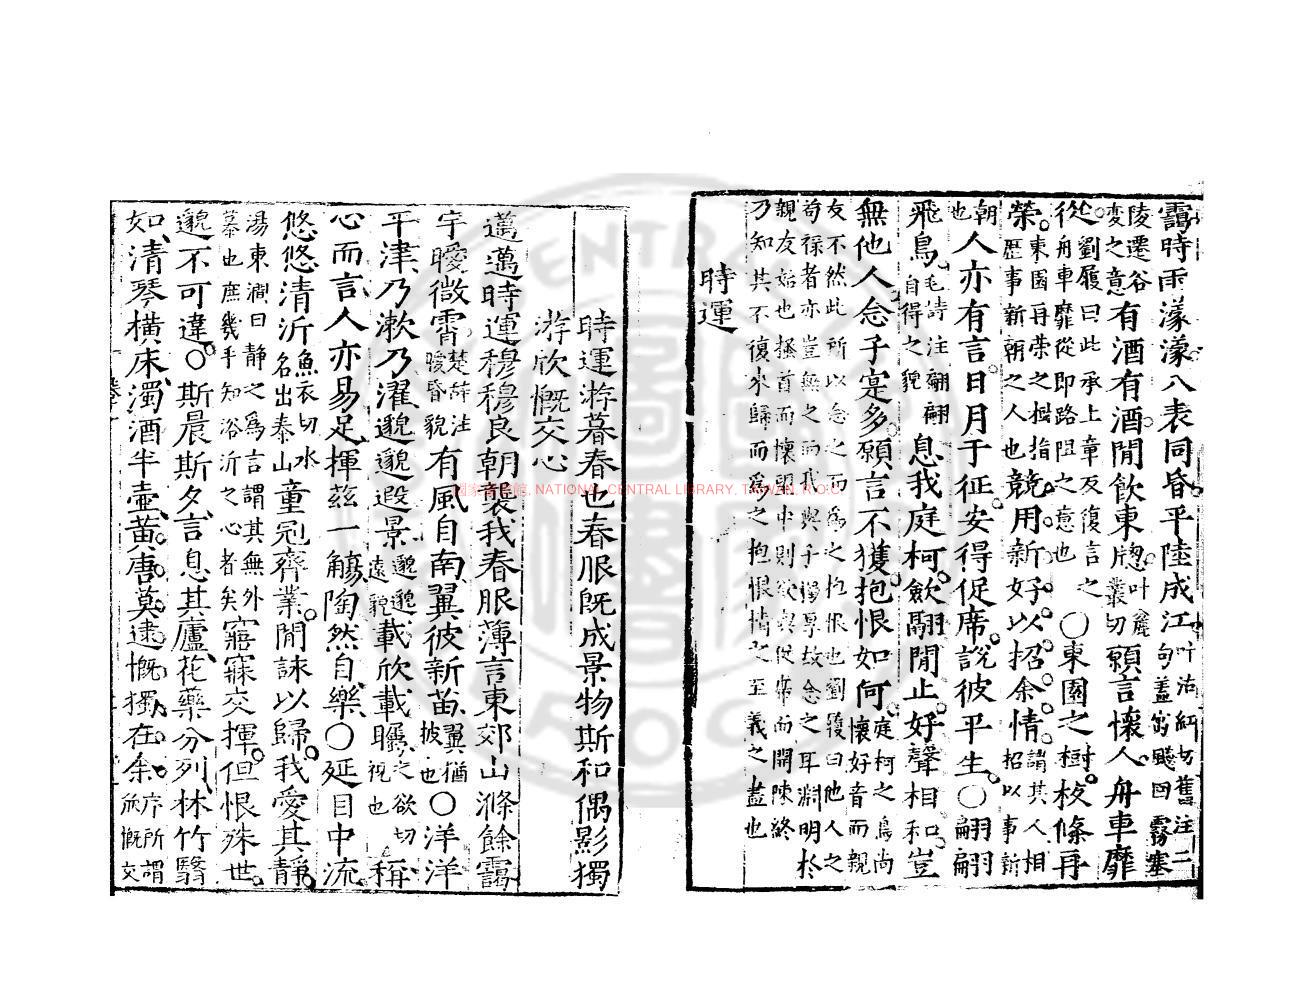 靄時雨濛濛八表同昏平陸成江叶沽紅切舊注二句蓋寓飈回霧塞
陵遷谷變之意有酒有酒閒飲東牕叶麤叢切願言懷人舟車靡
從劉履曰此承上章反復言之舟車靡從即路阻之意也〇東園之樹枝條再
榮東園再榮之樹指歷事新朝之人也競用新好以招余情謂其人相招以事新
朝也人亦有言日月于征安得促席說彼平生〇翩翩
飛鳥毛詩注翩翩自得之貌息我庭柯斂翮閒止好聲相和豈
無他人念子寔多願言不獲抱恨如何庭柯之鳥尚懷好音而親
友不然此所以念之而為之抱恨也劉履曰他人之
苟祿者亦豈無之而我與子獨厚故念之耳淵明於
親友始也搔首而懷望中則欲與促席而開陳終
乃知其不復來歸而為之抱恨情之至義之盡也
時運
時運游暮春也春服既成景物斯和偶影獨
游欣慨交心
邁邁時運穆穆良朝襲我春服薄言東郊山滌餘靄
宇曖微霄楚辭注曖昏貌有風自南翼彼新苗翼猶披也〇洋洋
平津乃漱乃濯邈邈遐景邈邈遠貌載欣載矚之欲切視也稱
心而言人亦易足揮茲一觴陶然自樂〇延目中流
悠悠清沂魚衣切水名出泰山童冠齊業閒詠以歸我愛其靜
湯東澗曰靜之為言謂其無外慕也庶幾乎知浴沂之心者矣寤寐交揮但恨殊世
邈不可違〇斯晨斯夕言息其廬花藥分列林竹翳
如清琴橫床濁酒半壺黃唐莫逮慨獨在余序所謂欣慨交
國家圖書館, NATIONAL CENTRAL LIBRARY, TAIWAN, R.O.C